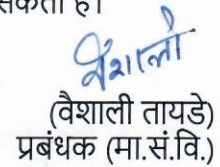 सकता है।
वैशाली
(वैशाली तायडे)
प्रबंधक (मा.सं.वि.)